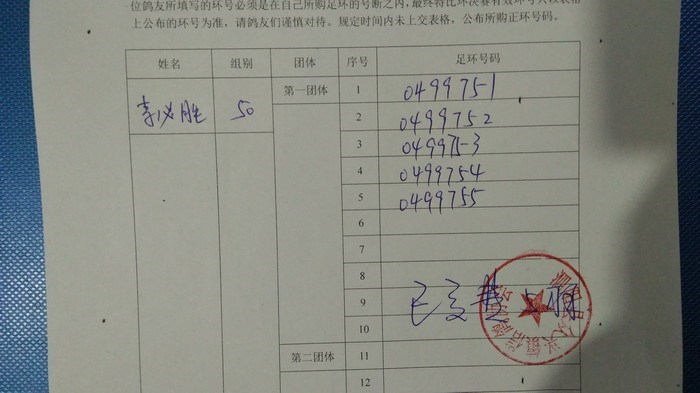 位鸽友所填写的环号必须是在自己所购足环的号断之内,最终特比环决赛有效环号
上公布的环号为准，请鸽友们谨慎对待。规定时间内未上交表格，公布所购正环号码。
姓名 组别 团体 序号 足环号码
李必胜 50 第一团体 1 0499751
2 0499752
3 0499753
4 0499754
5 0499755
6
7
8
9 已交
10
第二团体 11
12